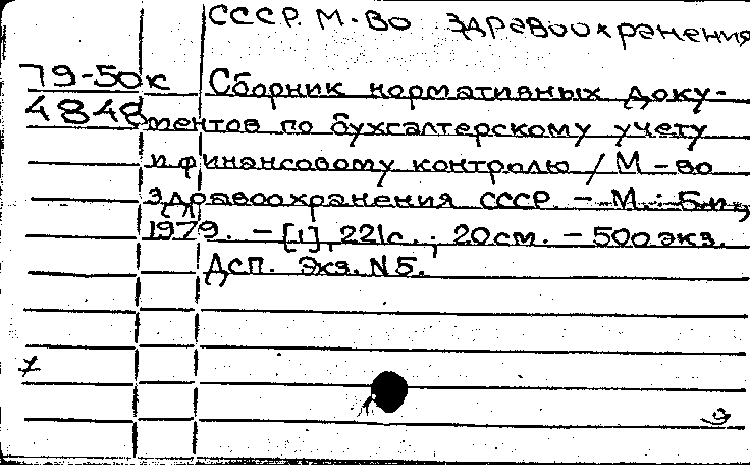 СССР. М-во здравоохранения
79-50к Сборник нормативных доку-
4848 ментов по бухгалтерскому учету
и финансовому контролю / М-во
здравоохранения СССР. - М.: Б.и.,
1979. - [1], 221с.; 20см. - 500 экз.
Дсп. Экз. N5.